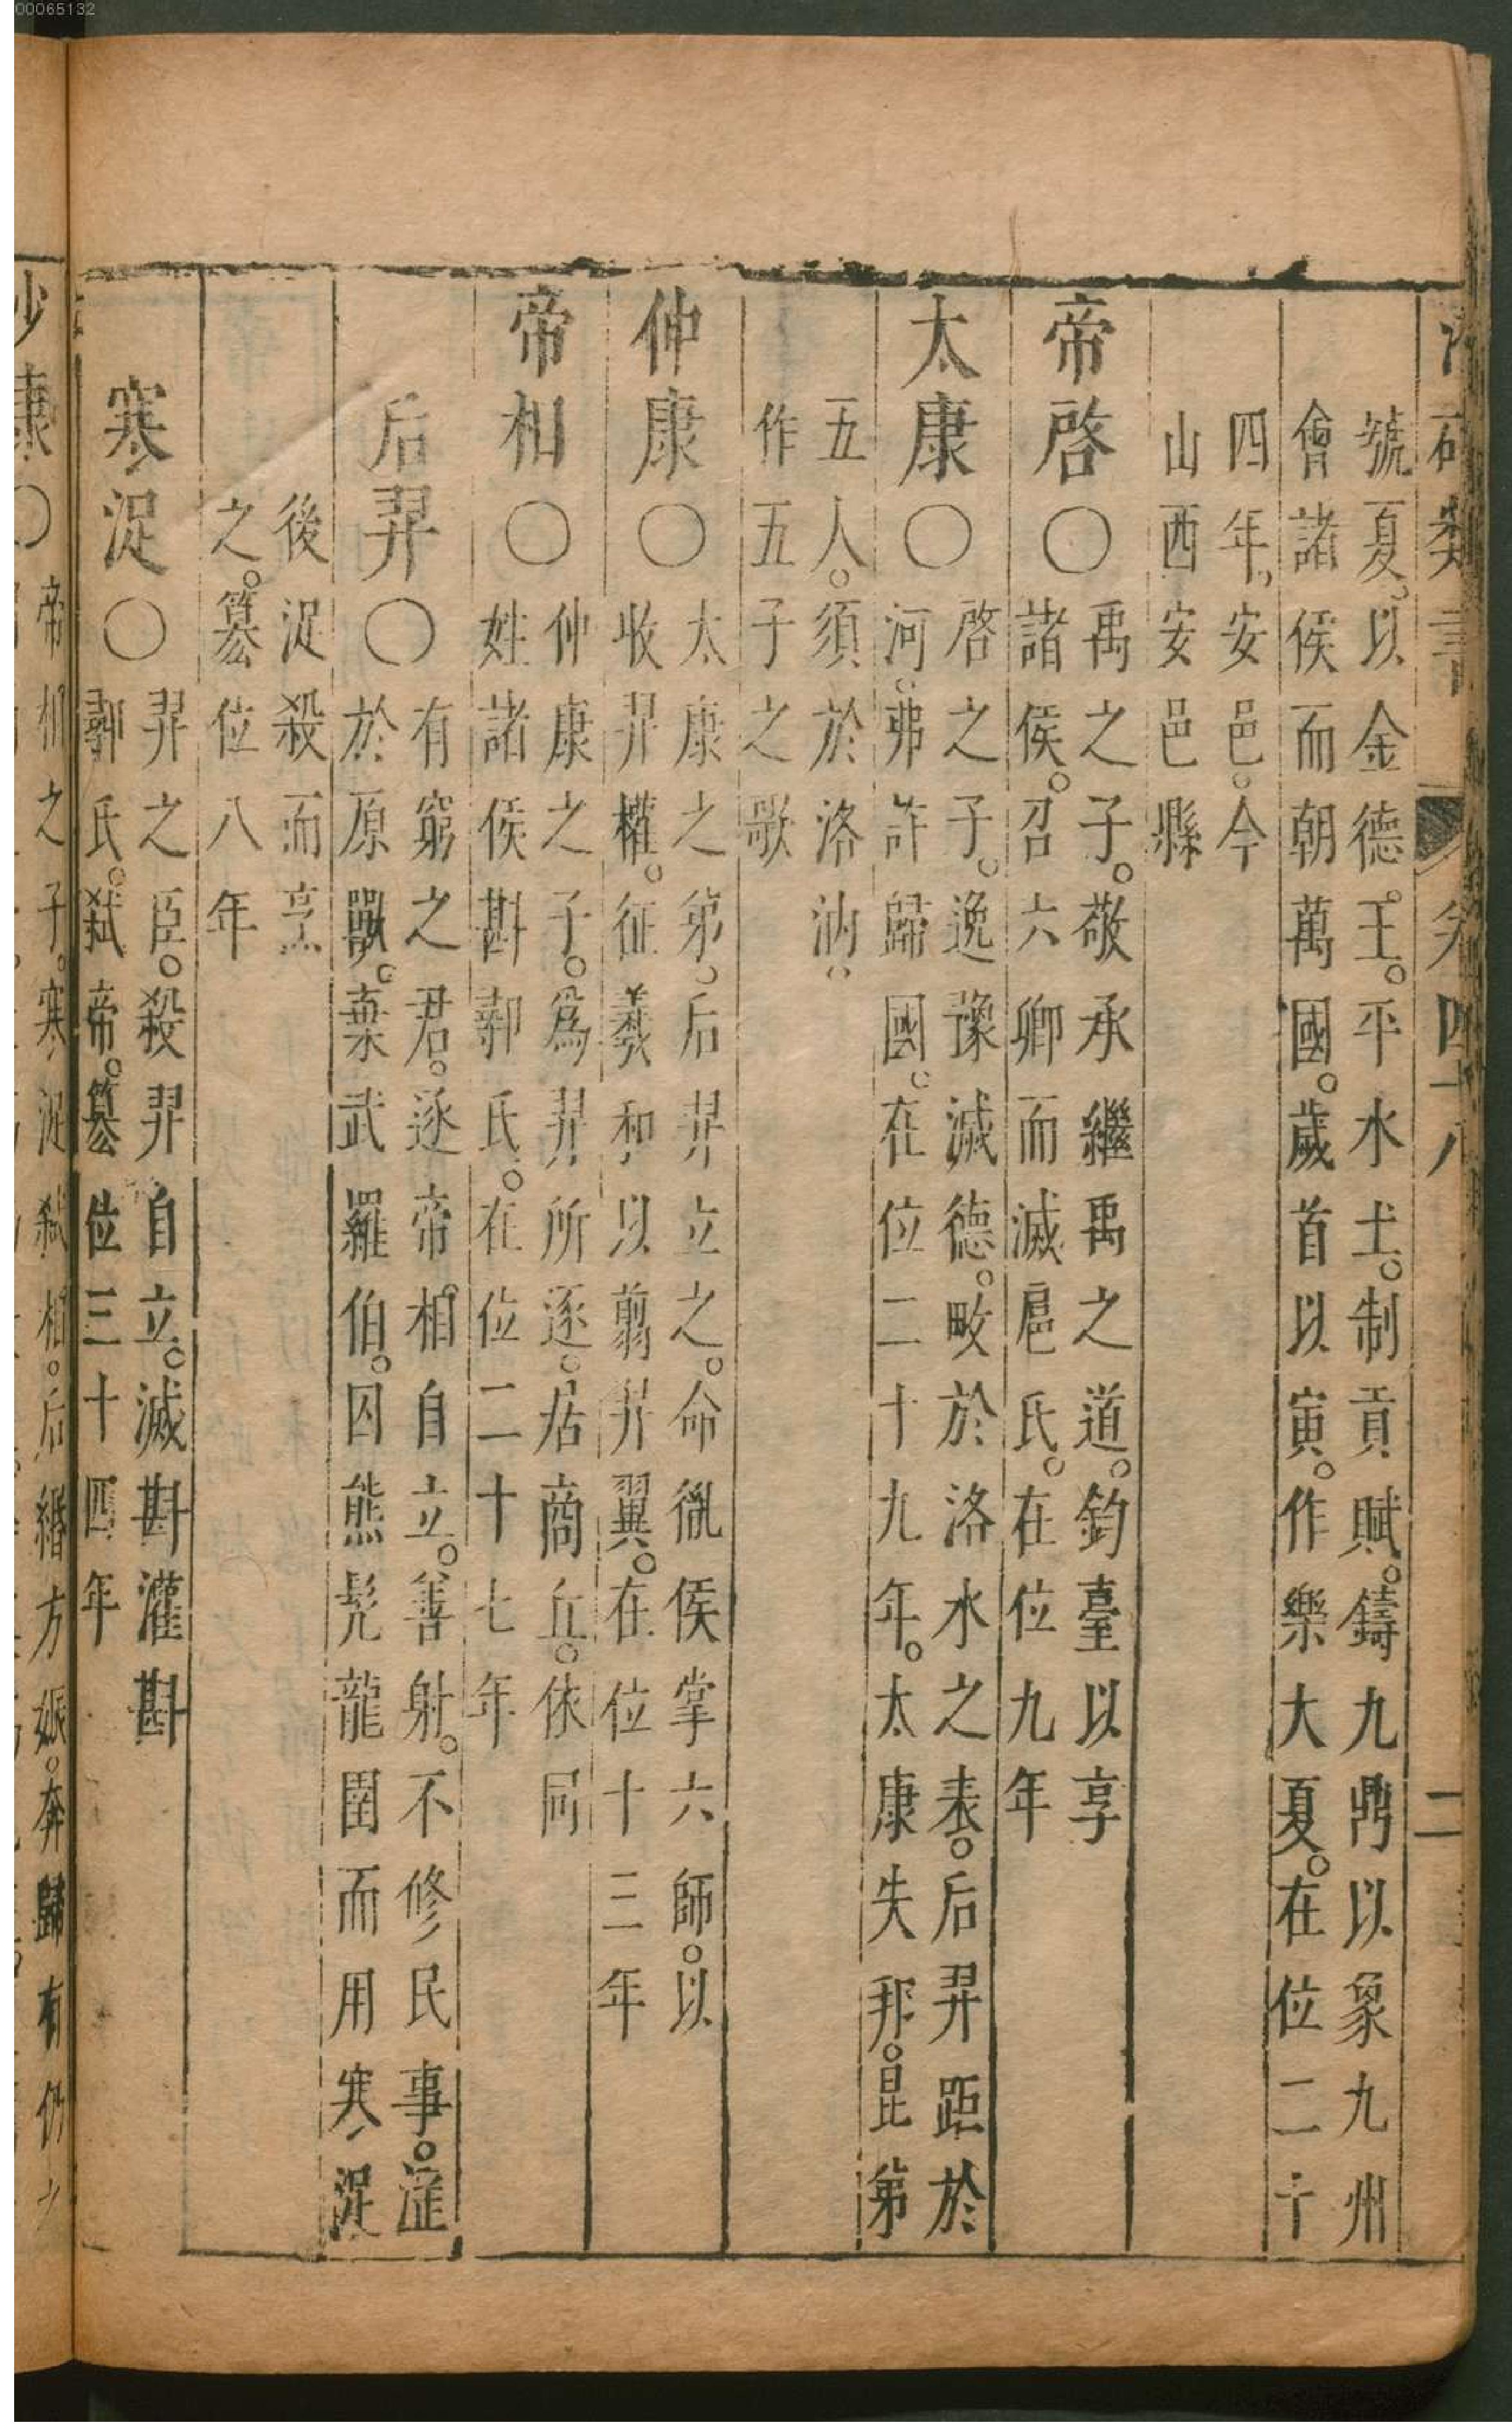 00065132
類書 卷四十八 二
號夏。以金德。王。平水土。制貢賦。鑄九鼎以象九州
會諸侯而朝萬國。歲首以寅。作樂大夏。在位二十
四年。安邑。今
山西安邑縣
帝啓〇
禹之子。敬承繼禹之道。鈞臺以享
諸侯。召六卿而滅扈氏。在位九年
太康〇
啓之子。逸豫滅德。畋於洛水之表。后羿距於
河。弗許歸國。在位二十九年。太康失邦。昆弟
五人。須於洛汭。
作五子之歌
仲康〇
太康之弟。后羿立之。命胤侯掌六師。以
收羿權。征羲和以翦羿翼。在位十三年
帝相〇
仲康之子。爲羿所逐。居商丘。依同
姓諸侯斟鄩氏。在位二十七年
后羿〇
有窮之君。逐帝相。自立。善射。不修民事。淫
於原獸。棄武羅伯。因熊髠龍圉而用寒浞
後浞殺而烹
之。簒位八年
寒浞〇
羿之臣。殺羿自立。滅斟灌斟
鄩氏。弒帝。簒位三十四年
少康〇
帝相之子。寒浞弒相。后緡方娠。奔歸有仍